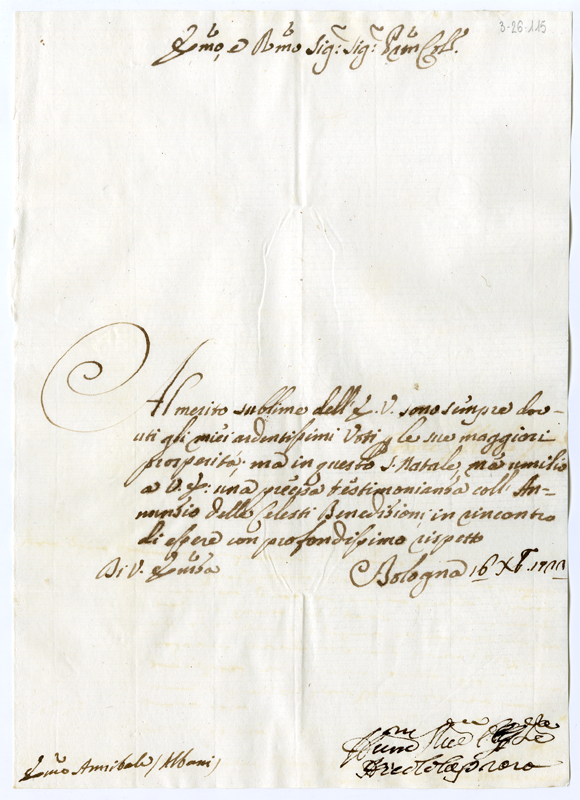 3-26-115
Emo, e Rmo Sig.r Sig.r Pron Coll.
Al merito sublime dell'E. V. sono sempre dov-
uti gli miei ardentissimi Voti p le sue maggiori
prosperità. ma in questo S. Natale, ma umilio
a V. E. una precisa testimonianza coll' An-
nunzio delle Celesti Benedizioni in rincontro
di essere con profondissimo rispetto
Di V. Eminza
Bologna 16 Xb.
Emo Annibale (Albani)